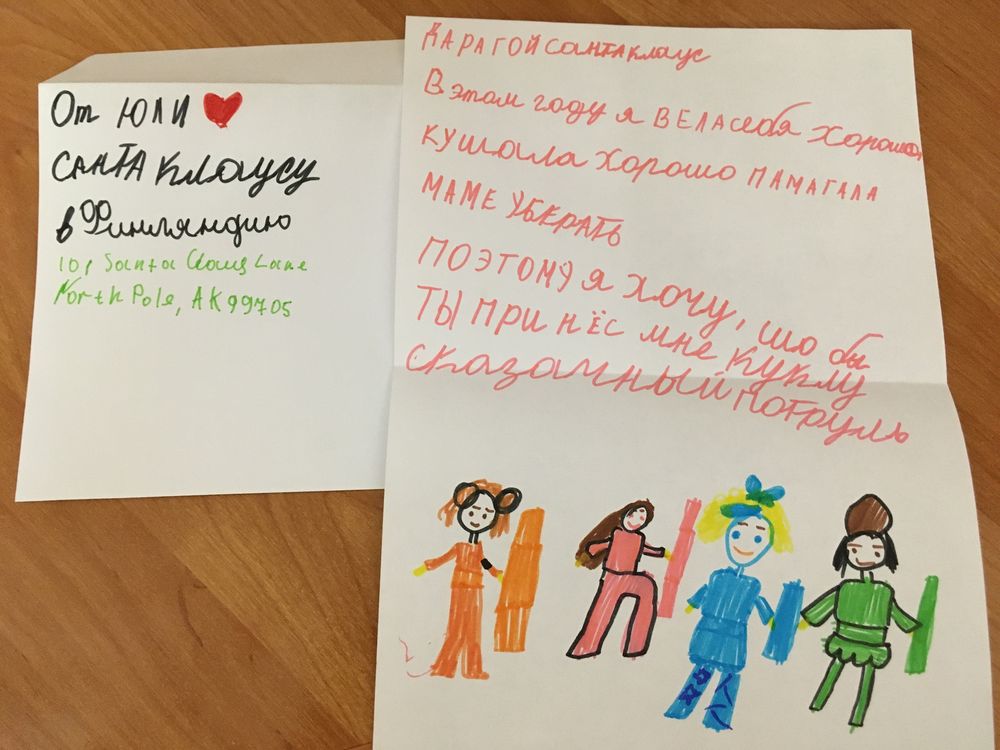 От Юли
САНТА Клаусу
в Финляндию
101 Santa Claus Lane
North Pole, AK 99705
ДАРАГОЙ САНТА КЛАУС
В этом году я ВЕЛА себя хорошо,
кушала хорошо ПАМАГАЛА
МАМЕ УБЕРАТЬ
ПОЭТОМУ я хочу, шо бы
ТЫ ПРИНЁС мне куклу
сказачный потруль